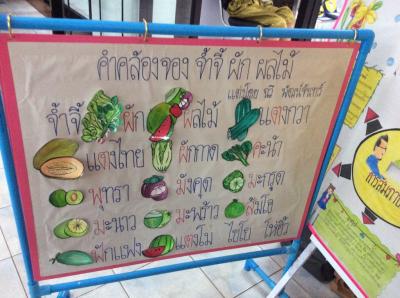 คำคล้องจอง จ้ำจี้ ผัก ผลไม้
จ้ำจี้ ผัก ผลไม้ แตงกวา
แตงไทย ผักกาด คะน้า
พุทรา มังคุด มะกรูด
มะนาว มะพร้าว ส้มโอ
ฟักแฟง แตงโม ไชโย โห่ฮิ้ว